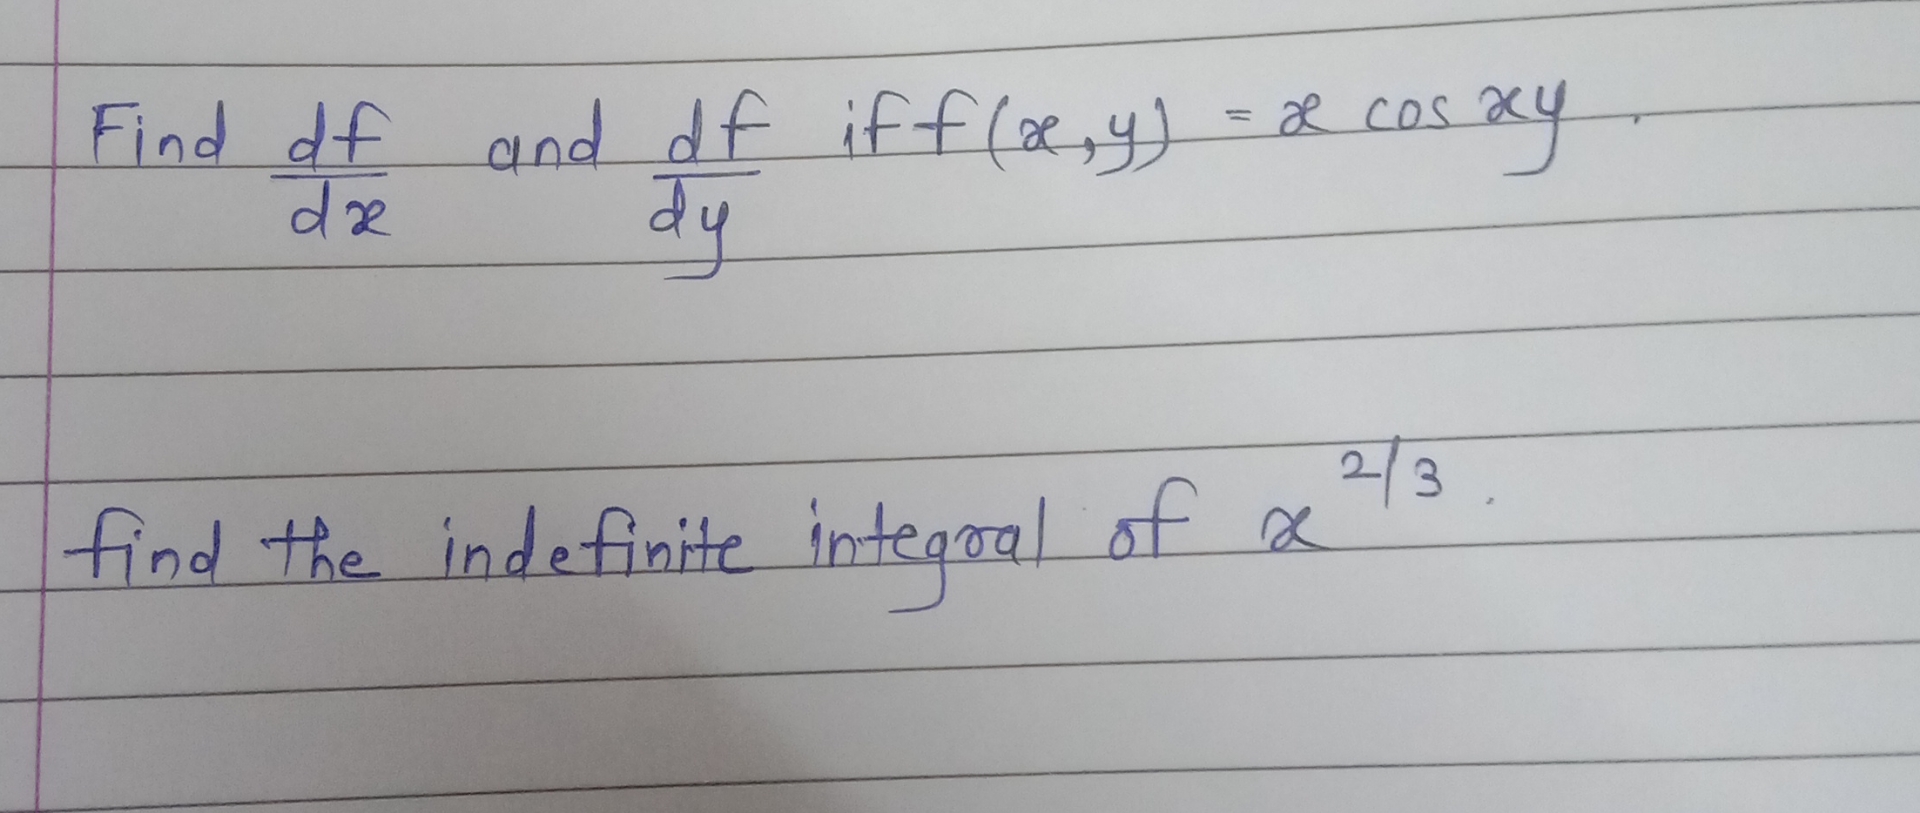 Find df/dx and df/dy if f(x,y) = x cos xy.
find the indefinite integral of x^2/3.